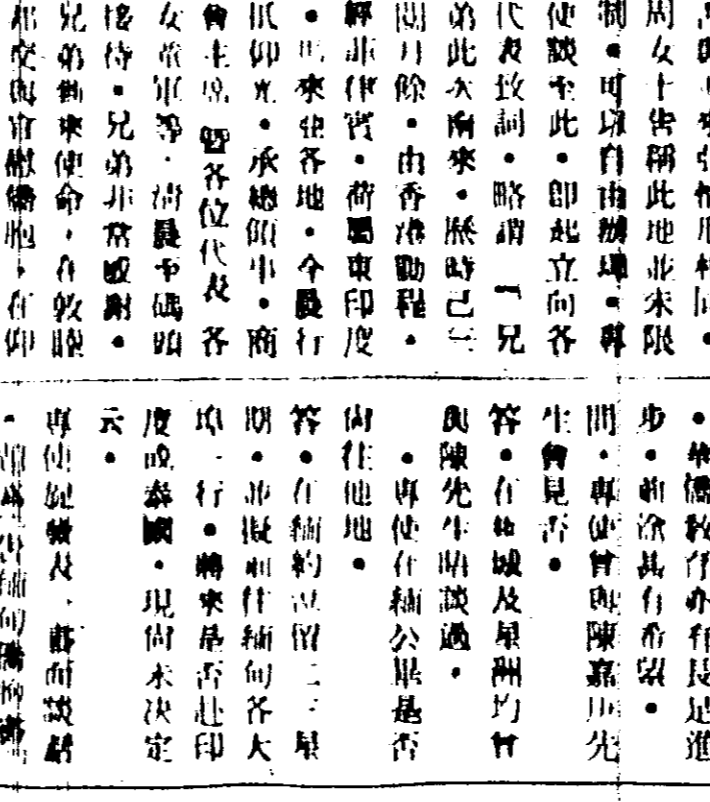 周女士告稱此地並未限
制。可以自由辦理。專
使談至此。即起立向各
代表致詞。略謂「兄
弟此次南來。歷時已三
閱月餘。由香港動程。
經菲律賓。荷屬東印度
。馬來亞各地。今晨行
抵仰光。承總領事。商
會主席暨各位代表各
女童軍等。清晨予碼頭
接待。兄弟非常感謝。
兄弟銜來使命。在敦睦
邦交與宣慰僑胞。在仰
。華僑教育亦有長足進
步。前途甚有希望。
問。專使曾與陳嘉庚先
生會見否。
答。在此城及星洲均曾
與陳先生晤談過。
。專使在緬公畢是否
尚往他地。
答。在緬約逗留二三星
期。並擬前往緬甸各大
埠一行。轉來是否赴印
度或泰國。現尚未決定
云。
專使發表。書面談話